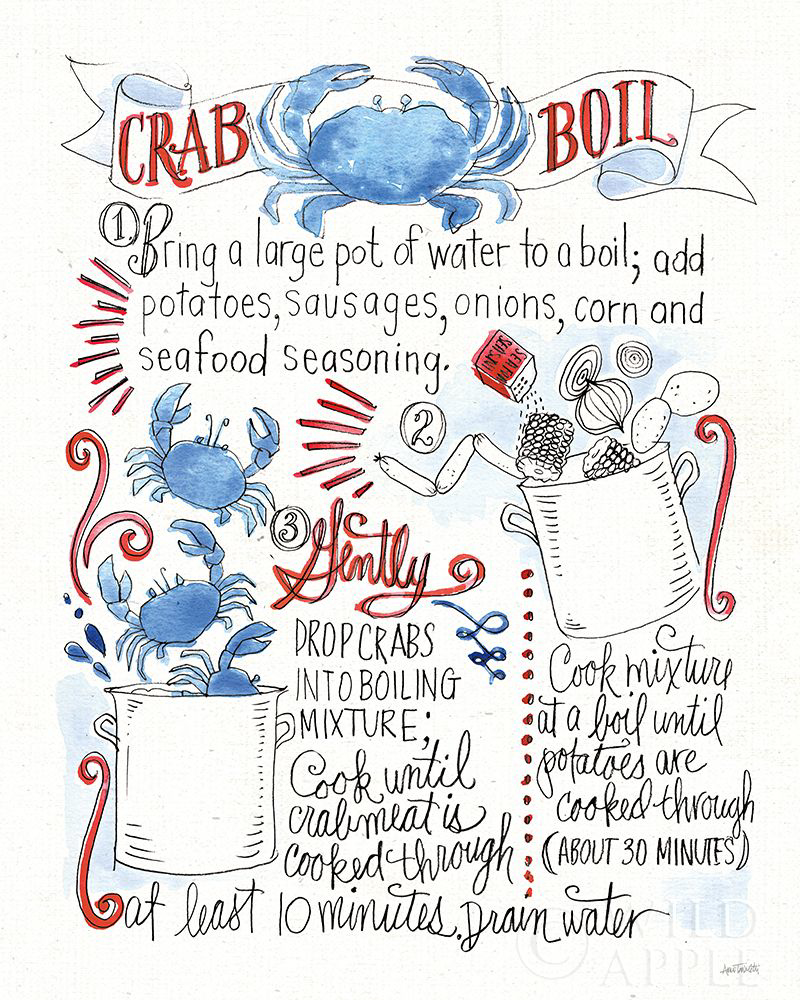 CRAB BOIL
1 Bring a large pot of water to a boil; add
potatoes, sausages, onions, corn and
seafood seasoning.
SEAFOOD
SEASONING
2
Cook mixture
at a boil until
potatoes are
cooked through
(ABOUT 30 MINUTES)
3 Gently
DROP CRABS
INTO BOILING
MIXTURE;
Cook until
crabmeat is
cooked through
at least 10 minutes. Drain water
© WILD
APPLE